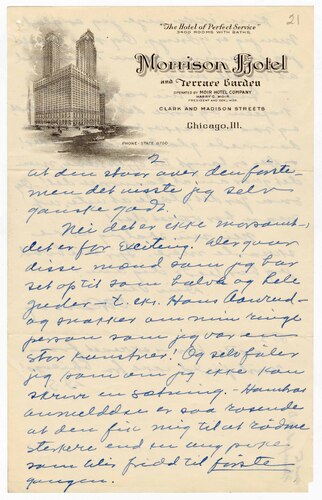 21
"The Hotel of Perfect Service"
3400 ROOMS WITH BATHS
Morrison Hotel
and Terrace Garden
OPERATED BY MOIR HOTEL COMPANY
HARRY C. MOIR
PRESIDENT AND GEN'L MGR.
CLARK AND MADISON STREETS
Chicago, Ill.
PHONE-STATE 8700
2
at den stod over den første-
men det visste jeg selv
ganske godt.
Nei det er ikke morsomt,
det er for exciting! Der gaar
disse mænd som jeg har
set op til som halve og hele
guder - t. eks. Hans Aanrud -
og snakker om min ringe
person som jeg var en
stor kunstner! Og selv føler
jeg som om jeg ikke kan
skrive en sætning.
anmeldelse er saa rosende
at den fik mig til at rødme
sterkere end en ung pike
som blir fridd til første
gangen.